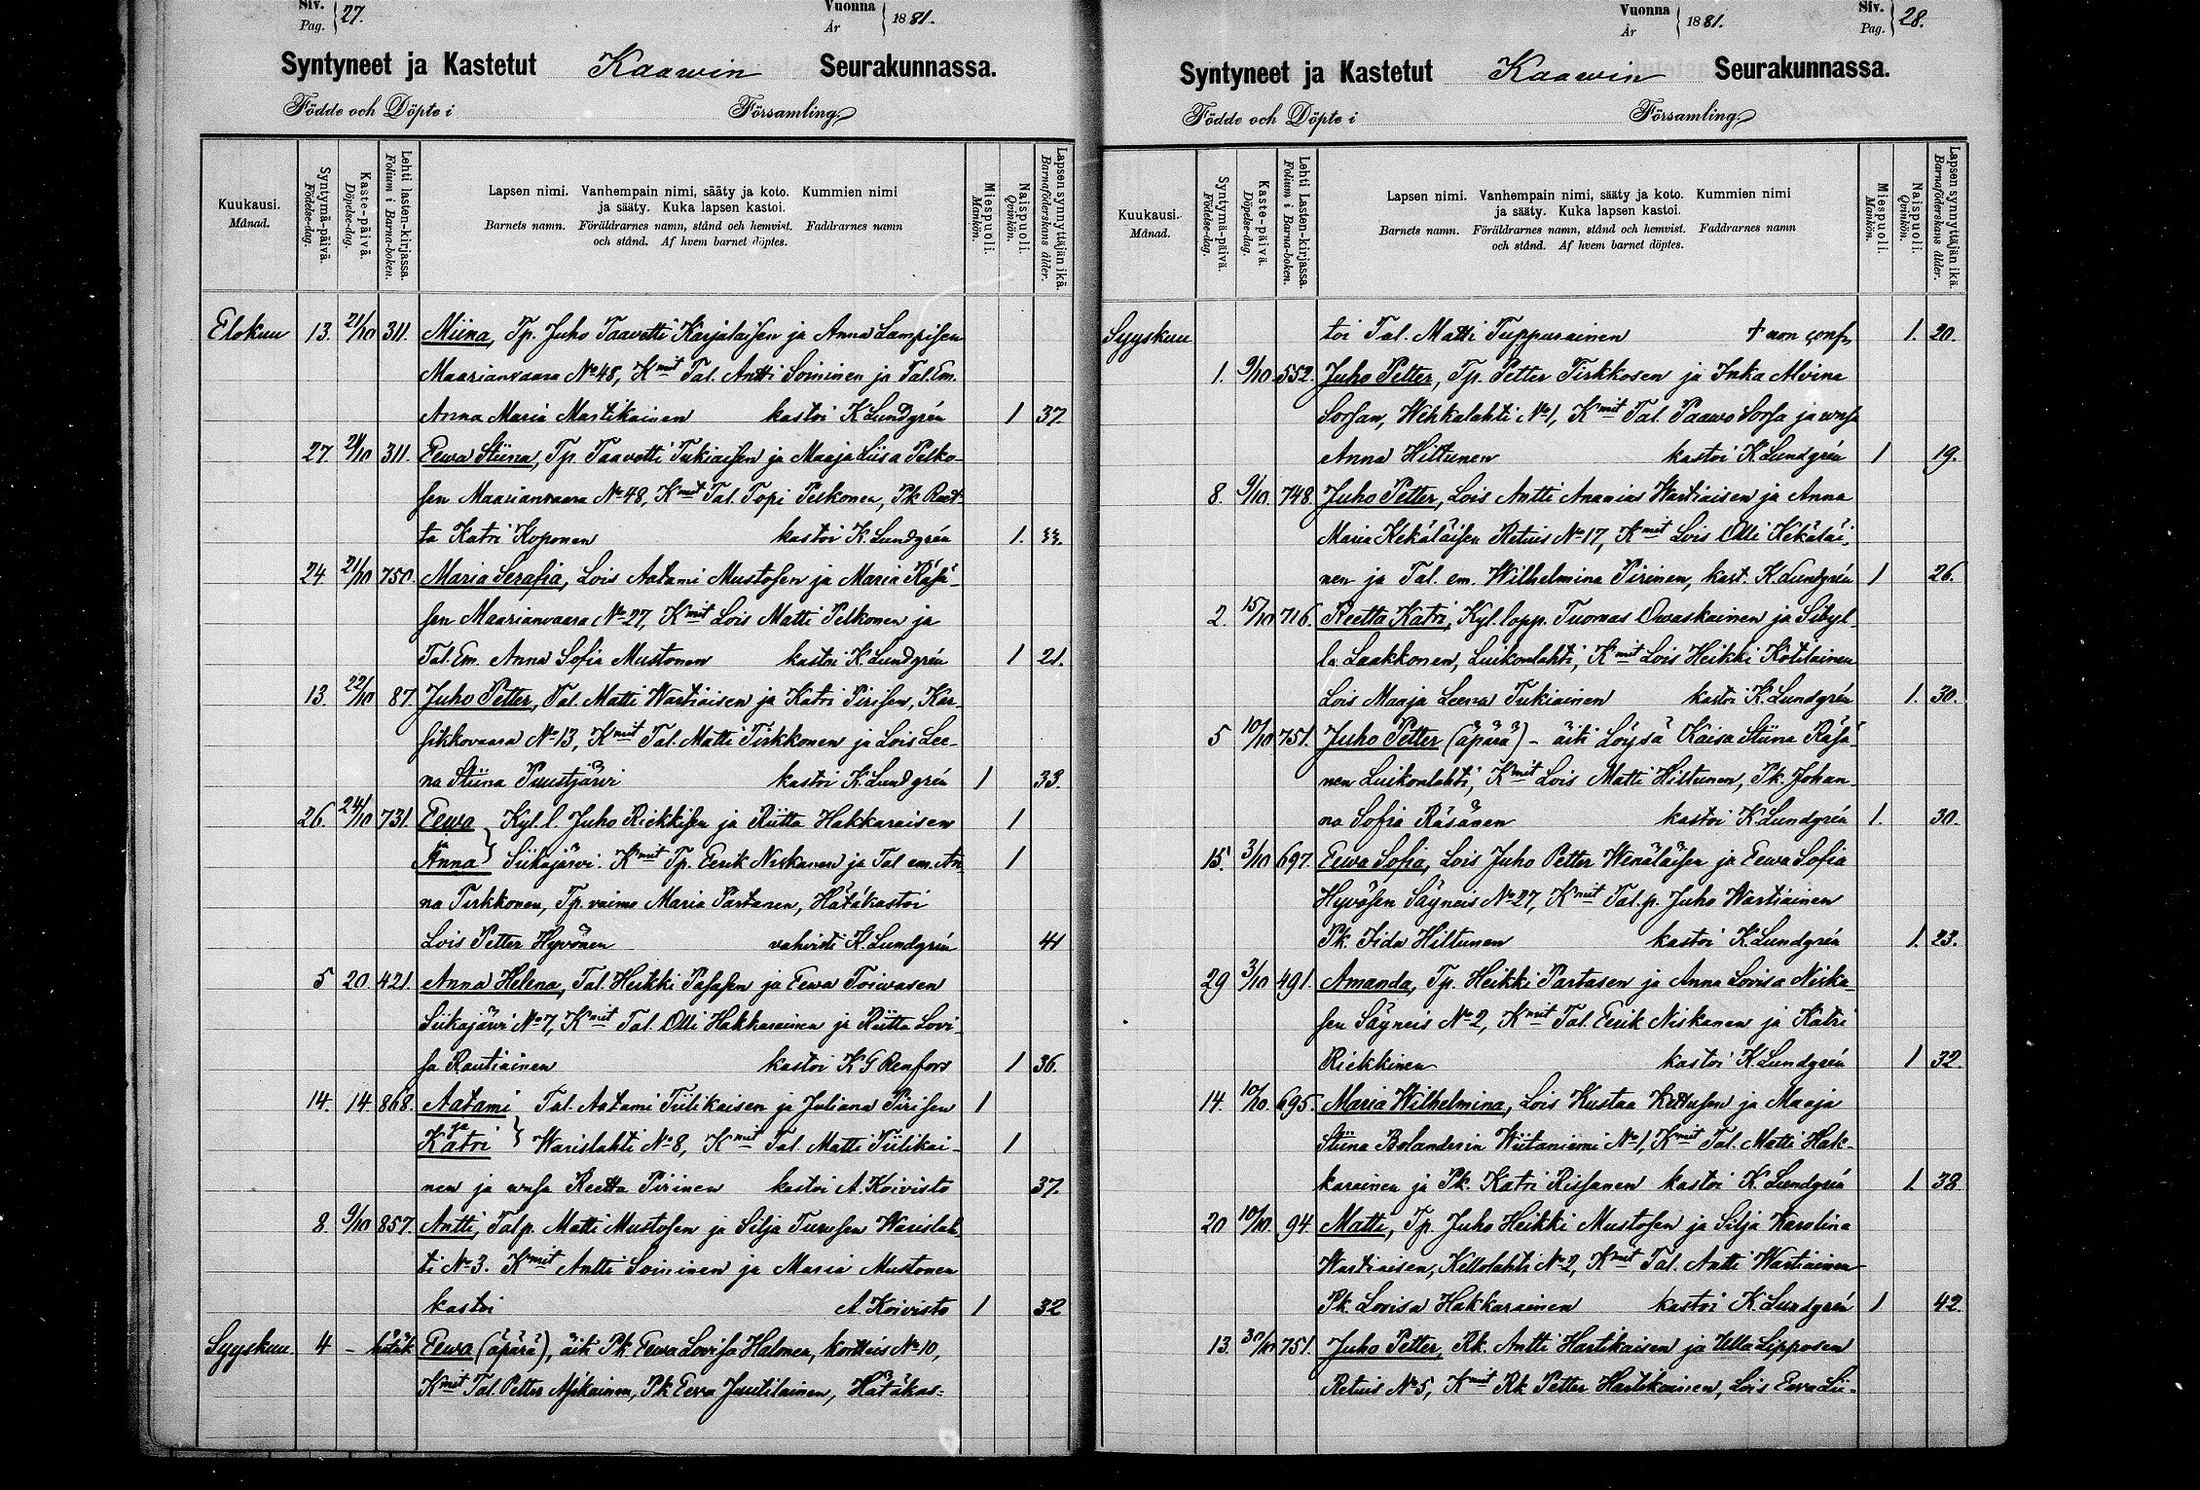 Siv. Pag. 27.
Vuonna År 1881.
Syntyneet ja Kastetut Kaawin Seurakunnassa.
Födde och Döpte i Församling.
Kuukausi. Månad.
Syntymä-päivä. Födelse-dag.
Kaste-päivä. Döpelse-dag.
Lehti lasten-kirjassa. Folium i Barna-boken.
Lapsen nimi. Vanhempain nimi, sääty ja koto. Kummien nimi
ja sääty. Kuka lapsen kastoi.
Barnets namn. Föräldrarnes namn, stånd och hemvist. Faddrarnes namn
och stånd. Af hvem barnet döptes.
Miespuoli. Mankön.
Naispuoli. Qvinkön.
Lapsen synnyttäjän ikä. Barnaföderskans ålder.
Elokuu 13. 21/10 311. Miina, Tp. Juho Taavetti Karjalaisen ja Anna Lampisen
Maarianvaara No 48, Kmit Tal. Antti Soininen ja Tal. Em.
Anna Maria Martikainen kastoi K. Lundgrén 1 37.
27. 21/10 311. Eewa Stiina, Tp. Taavetti Tukiaisen ja Maaja Liisa Pelko-
sen Maarianvaara No 48, Kmit Tal. Topi Peskonen, Pk. Reet-
ta Katri Koponen kastoi K. Lundgrén 1. 33.
24 21/10 750. Maria Serafia, Lois Aatami Mustosen ja Maria Räsä-
sen Maarianvaara No 27, Kmit Lois Matti Pelkonen ja
Tal. Em. Anna Sofia Mustonen kastoi K. Lundgrén 1 21.
13. 22/10 87 Juho Petter, Tal. Matti Wartiaisen ja Katri Pirisen, Kar-
sikkovaara No 13, Kmit Tal. Matti Tirkkonen ja Lois Lee-
na Stiina Puustjärvi kastoi K. Lundgrén 1 33.
26. 24/10 731. Eewa } Kyl. l. Juho Riekkisen ja Riitta Hakkaraisen 1
ja Anna } Siikajärvi. Kmit Tp. Eerik Niskanen ja Tal em. An-
1
na Tirkkonen, Tp. vaimo Maria Partanen, Hätäkastoi
Lois Petter Hyvönen vahvisti K. Lundgrén 41
5 20 421. Anna Helena, Tal. Heikki Pasasen ja Eewa Toiwasen
Siikajärvi No 7, Kmit Tal. Olli Hakkarainen ja Riitta Lovi-
sa Rautiainen kastoi K G Renfors 1 36.
14. 14. 868. Aatami Tal. Aatami Tiilikaisen ja Juliana Pirisen 1
ja Katri } Warislahti No 8, Kmit Tal. Matti Tiilikai- 1
nen ja wmsa Reetta Pirinen kastoi A. Koivisto 37.
8. 9/10 857. Antti, Talp. Matti Mustosen ja Silja Turusen Warislah-
ti No 3. Kmit Antti Soininen ja Maria Mustonen
kastoi A. Koivisto 1 32
Syyskuu 4 - hätäk Eewa (äpärä), äiti Pk. Eewa Lovisa Halonen, Kortteis No 10,
Kmit Tal. Petter Asikainen, Pk Eewa Juutilainen, Hätäkas-
Vuonna År 1881.
Siv. Pag. 28.
Syntyneet ja Kastetut Kaawin Seurakunnassa.
Födde och Döpte i Församling.
Kuukausi. Månad.
Syntymä-päivä. Födelse-dag.
Kaste-päivä. Döpelse-dag.
Lehti Lasten-kirjassa. Folium i Barna-boken.
Lapsen nimi. Vanhempain nimi, sääty ja koto. Kummien nimi
ja sääty. Kuka lapsen kastoi.
Barnets namn. Föräldrarnes namn, stånd och hemvist. Faddrarnes namn
och stånd. Af hvem barnet döptes.
Miespuoli. Mankön.
Naispuoli. Qvinkön.
Lapsen synnyttäjän ikä. Barnaföderskans ålder.
Syyskuu toi Tal. Matti Tuppurainen † non conf. 1. 20.
1. 9/10 552. Juho Petter, Tp. Petter Tirkkosen ja Inka Alvina
Sorsan, Wehkalahti No 1, Kmit Tal. Paawo Sorsa ja wmsa
Anna Hiltunen kastoi K. Lundgrén 1 19.
8. 9/10. 748. Juho Petter, Lois Antti Ananias Wartiaisen ja Anna
Maria Kekäläisen Retuis No 17, Kmit Lois Olli Kekäläi-
nen ja Tal. em. Wilhelmina Pirinen, kast. K. Lundgrén 1 26.
2. 15/10 716. Reetta Katri, Kyl. lopp. Tuomas Owaskainen ja Sibyl-
la Laakkonen, Luikonlahti, Kmit Lois Heikki Kotilainen
Lois Maaja Leena Tukiainen kastoi K. Lundgrén 1. 30.
5 10/10 751. Juho Petter (äpärä) - äiti Löysä Kaisa Stiina Räsä-
nen Luikonlahti, Kmit Lois Matti Hiltunen, Pk. Johan-
na Sofia Räsänen kastoi K. Lundgrén 1. 30.
15. 3/10 697. Eewa Sofia, Lois Juho Petter Wenäläisen ja Eewa Sofia
Hyvösen Säyneis No 27, Kmit Tal. p. Juho Wartiainen
Pk. Iida Hiltunen kastoi K. Lundgrén 1. 23.
29 3/10 491. Amanda, Tp. Heikki Partasen ja Anna Lovisa Niska-
sen Säyneis No 2, Kmit Tal. Eerik Niskanen ja Katri
Riekkinen kastoi K. Lundgrén 1 32.
14. 10/10. 695. Maria Wilhelmina, Lois Kustaa Kettusen ja Maaja
Stiina Bolanderin Wiitaniemi No 1, Kmit Tal. Matti Hak-
karainen ja Pk. Katri Rissanen kastoi K. Lundgrén 1. 38
20 10/10. 94. Matti, Tp. Juho Heikki Mustosen ja Silja Karolina
Wartiaisen, Kellolahti No 2, Kmit Tal. Antti Wartiainen
Pk. Lovisa Hakkarainen kastoi K. Lundgrén 1 42.
13. 30/10 751. Juho Petter, Rk. Antti Hartikaisen ja Ulla Lipposen
Retuis No 5, Kmit Rk Petter Hartikainen, Lois Eewa Lii-